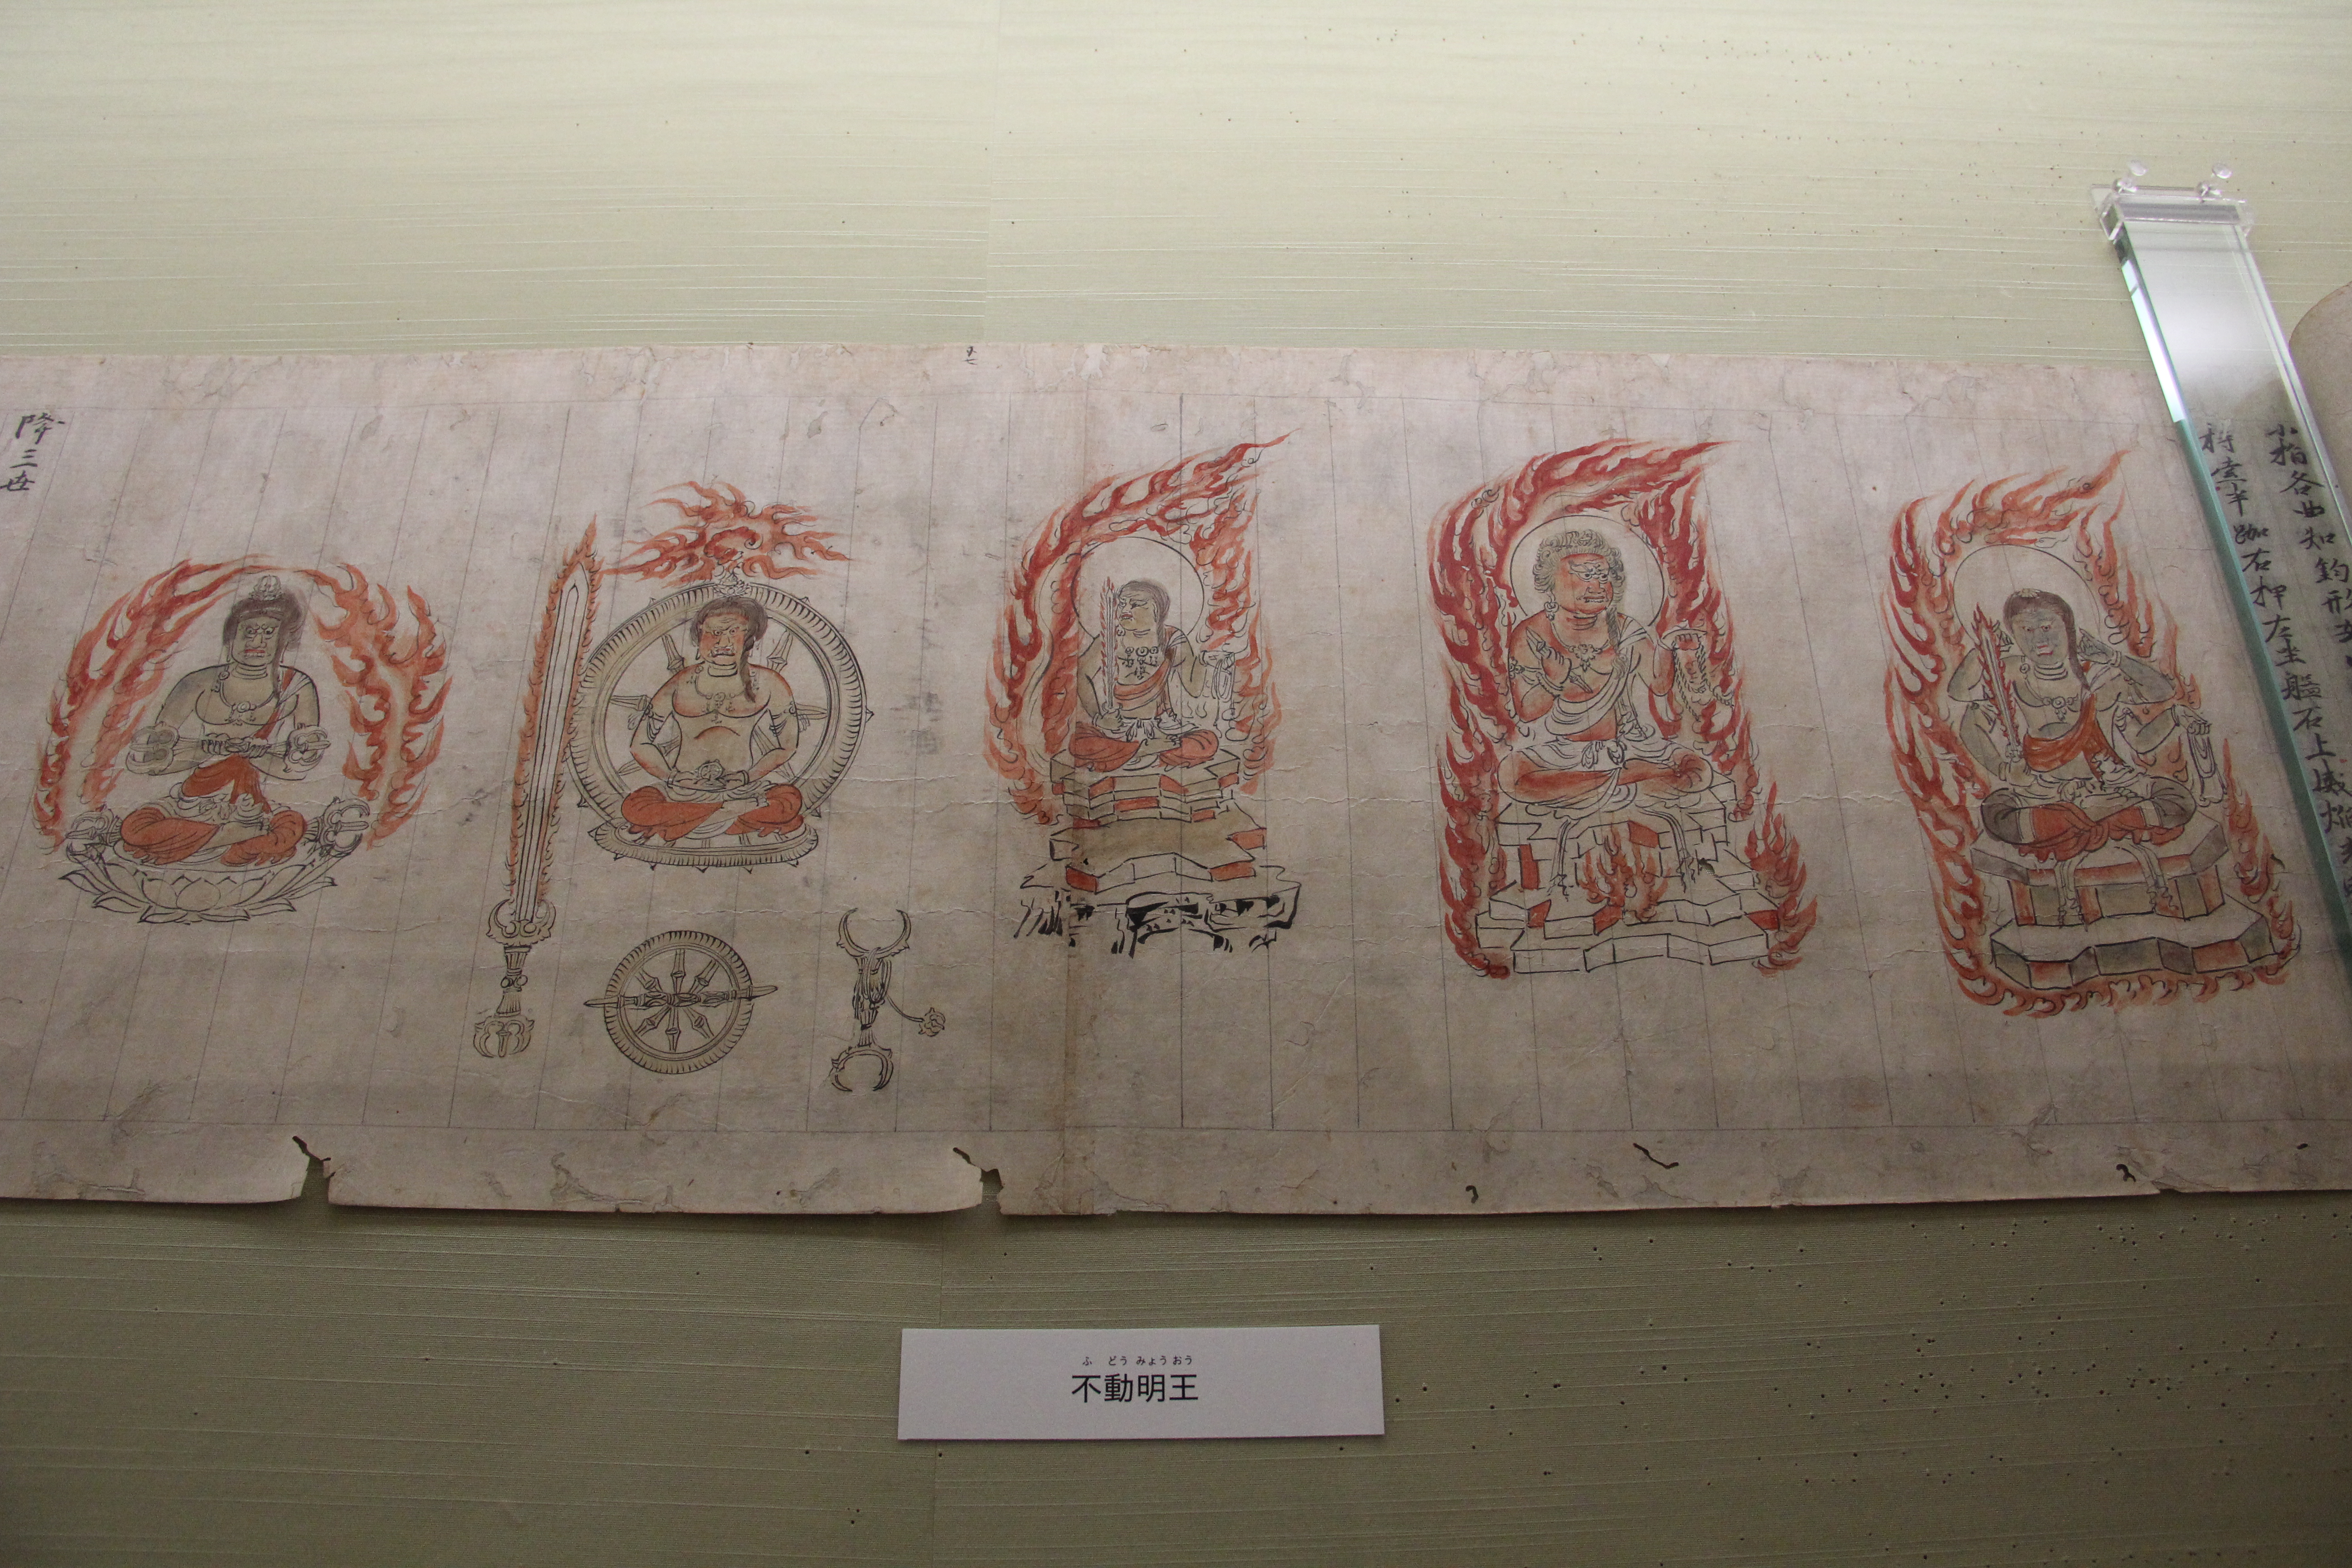 小指各曲如鈎形
索半跏右押左坐盤石上威焔
降三世
ふ どう みょう おう
不動明王